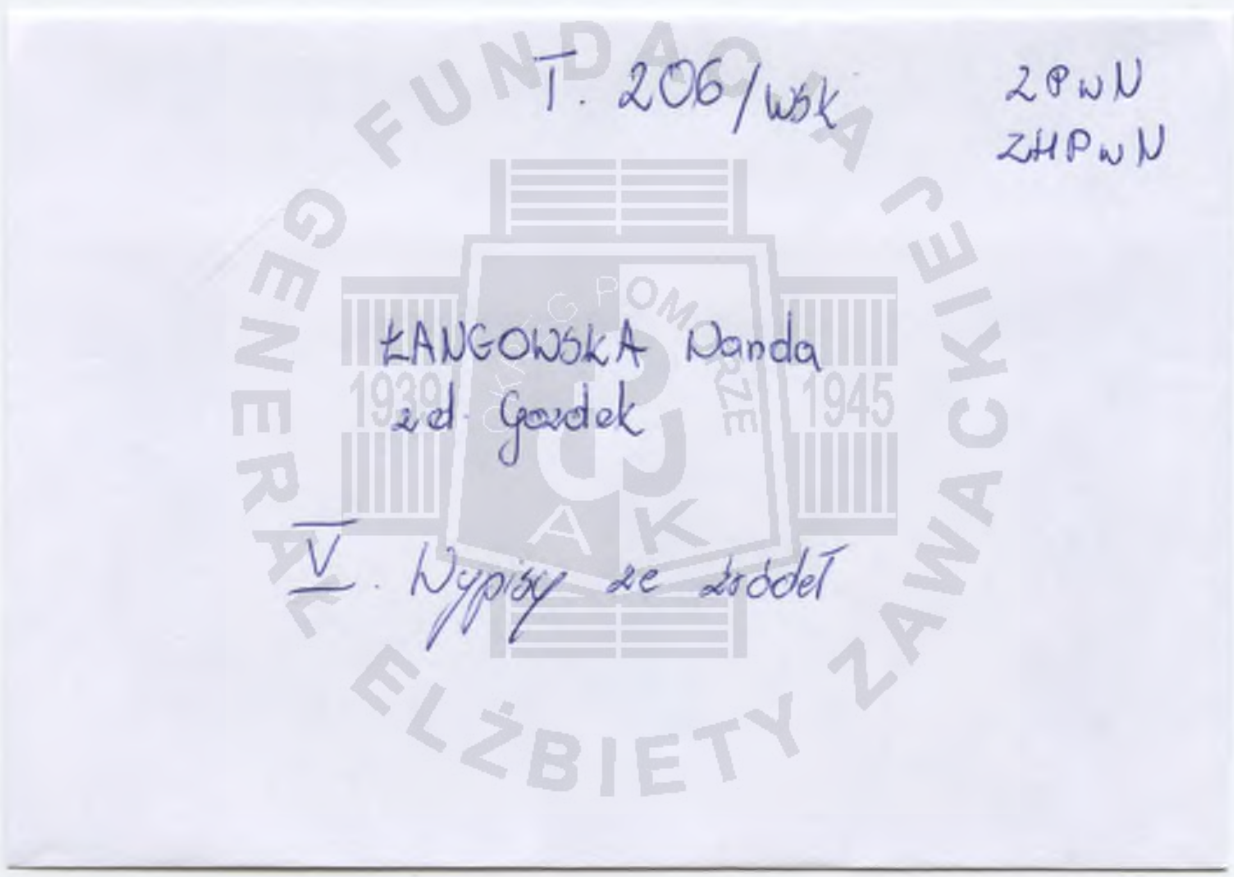 T. 206/WSK
ZPwN
ZHPwN
ŁANGOWSKA Wanda
zd. Gozdek
V. Wypisy ze źródeł
FUNDACJA JEJ
GENERAŁ ELŻBIETY ZAWACKIEJ
OKRĘG POMORZE
1939
1945
AK